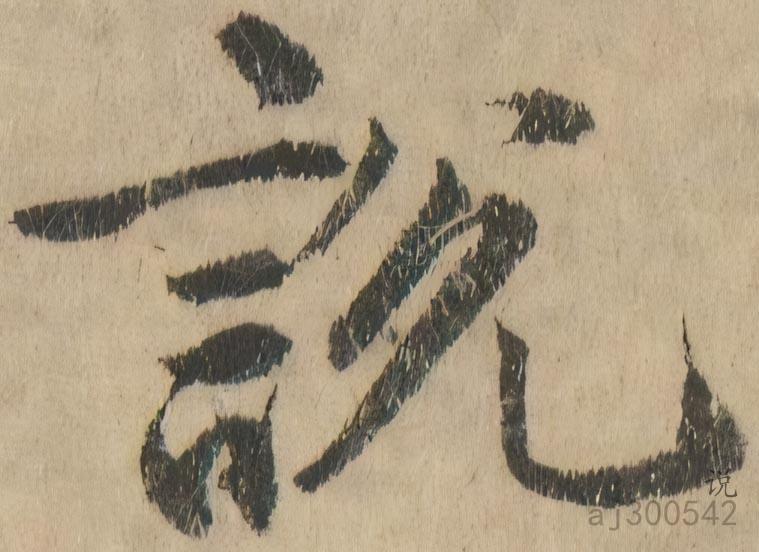 説
说
aj300542